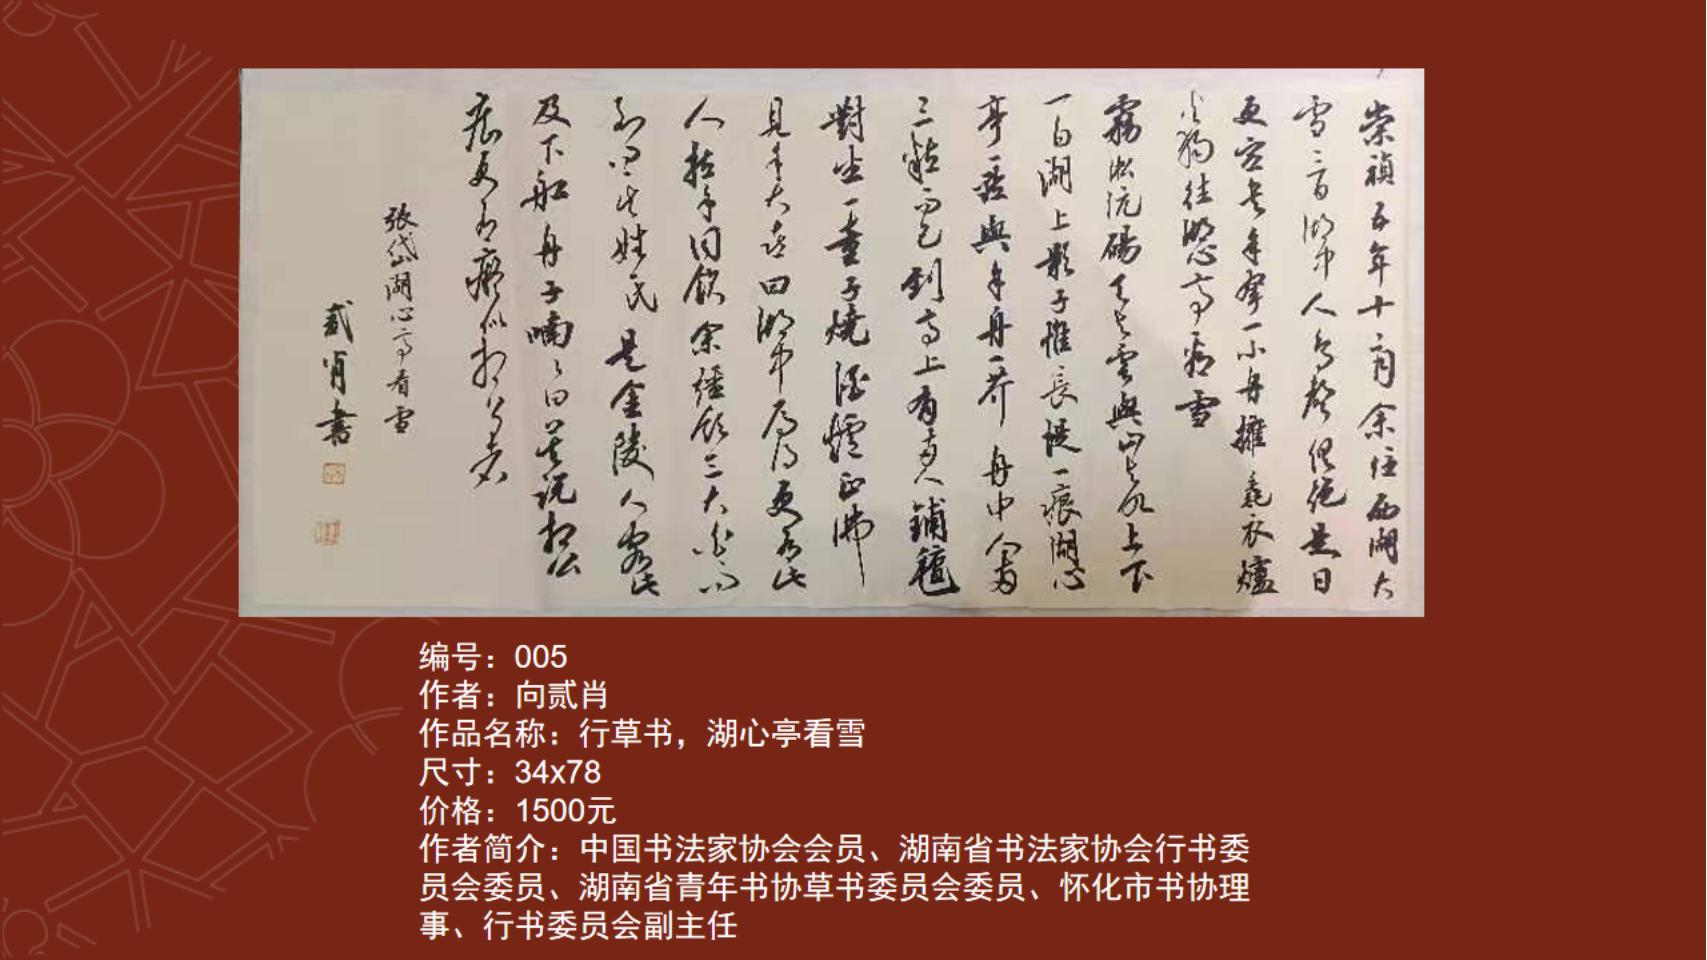 崇禎五年十二月余住西湖大
雪三日湖中人鳥聲俱絕是日
更定矣余拏一小舟擁毳衣爐
火獨往湖心亭看雪
霧凇沆碭天與雲與山與水上下
一白湖上影子惟長堤一痕湖心
亭一點與余舟一芥舟中人兩
三粒而已到亭上有兩人鋪氈
對坐一童子燒酒爐正沸
見余大喜曰湖中焉得更有此
人拉余同飲余強飲三大白而
別問其姓氏是金陵人客此
及下船舟子喃々曰莫說相公
痴更有癡似相公者
張岱湖心亭看雪
貳肖書
编号：005
作者：向贰肖
作品名称：行草书，湖心亭看雪
尺寸：34x78
价格：1500元
作者简介：中国书法家协会会员、湖南省书法家协会行书委
员会委员、湖南省青年书协草书委员会委员、怀化市书协理
事、行书委员会副主任